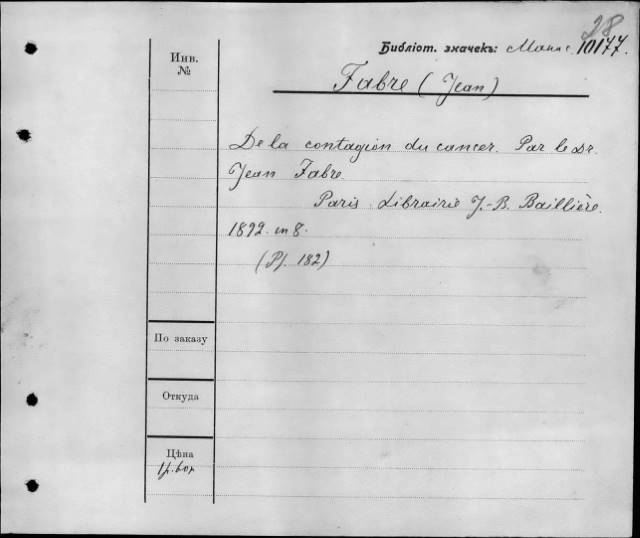 28
Библіот. значекъ: 10177.
Инв.
№
Fabre (Jean)
De la contagion du cancer. Par le Dr.
Jean Fabre.
Paris. Librairie J.-B. Baillière.
1892. in 8.
(Pf. 182)
По заказу
Откуда
Цѣна
1р. 60к